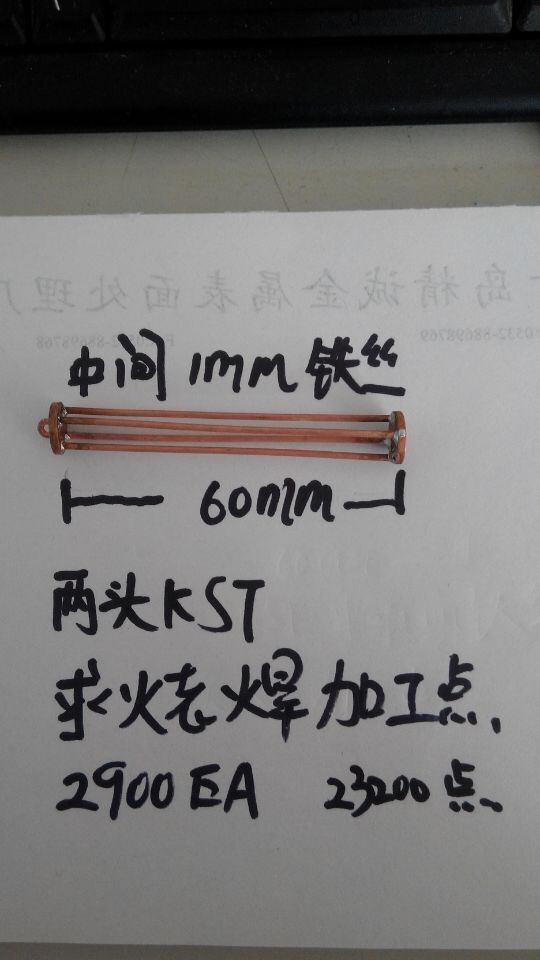 岛精诚金属表面处理厂
:0532-88698769 F:0532-88698768
中间 1mm 铁丝
60mm
两头KST
求烧焊加工点.
2900EA 23200点.